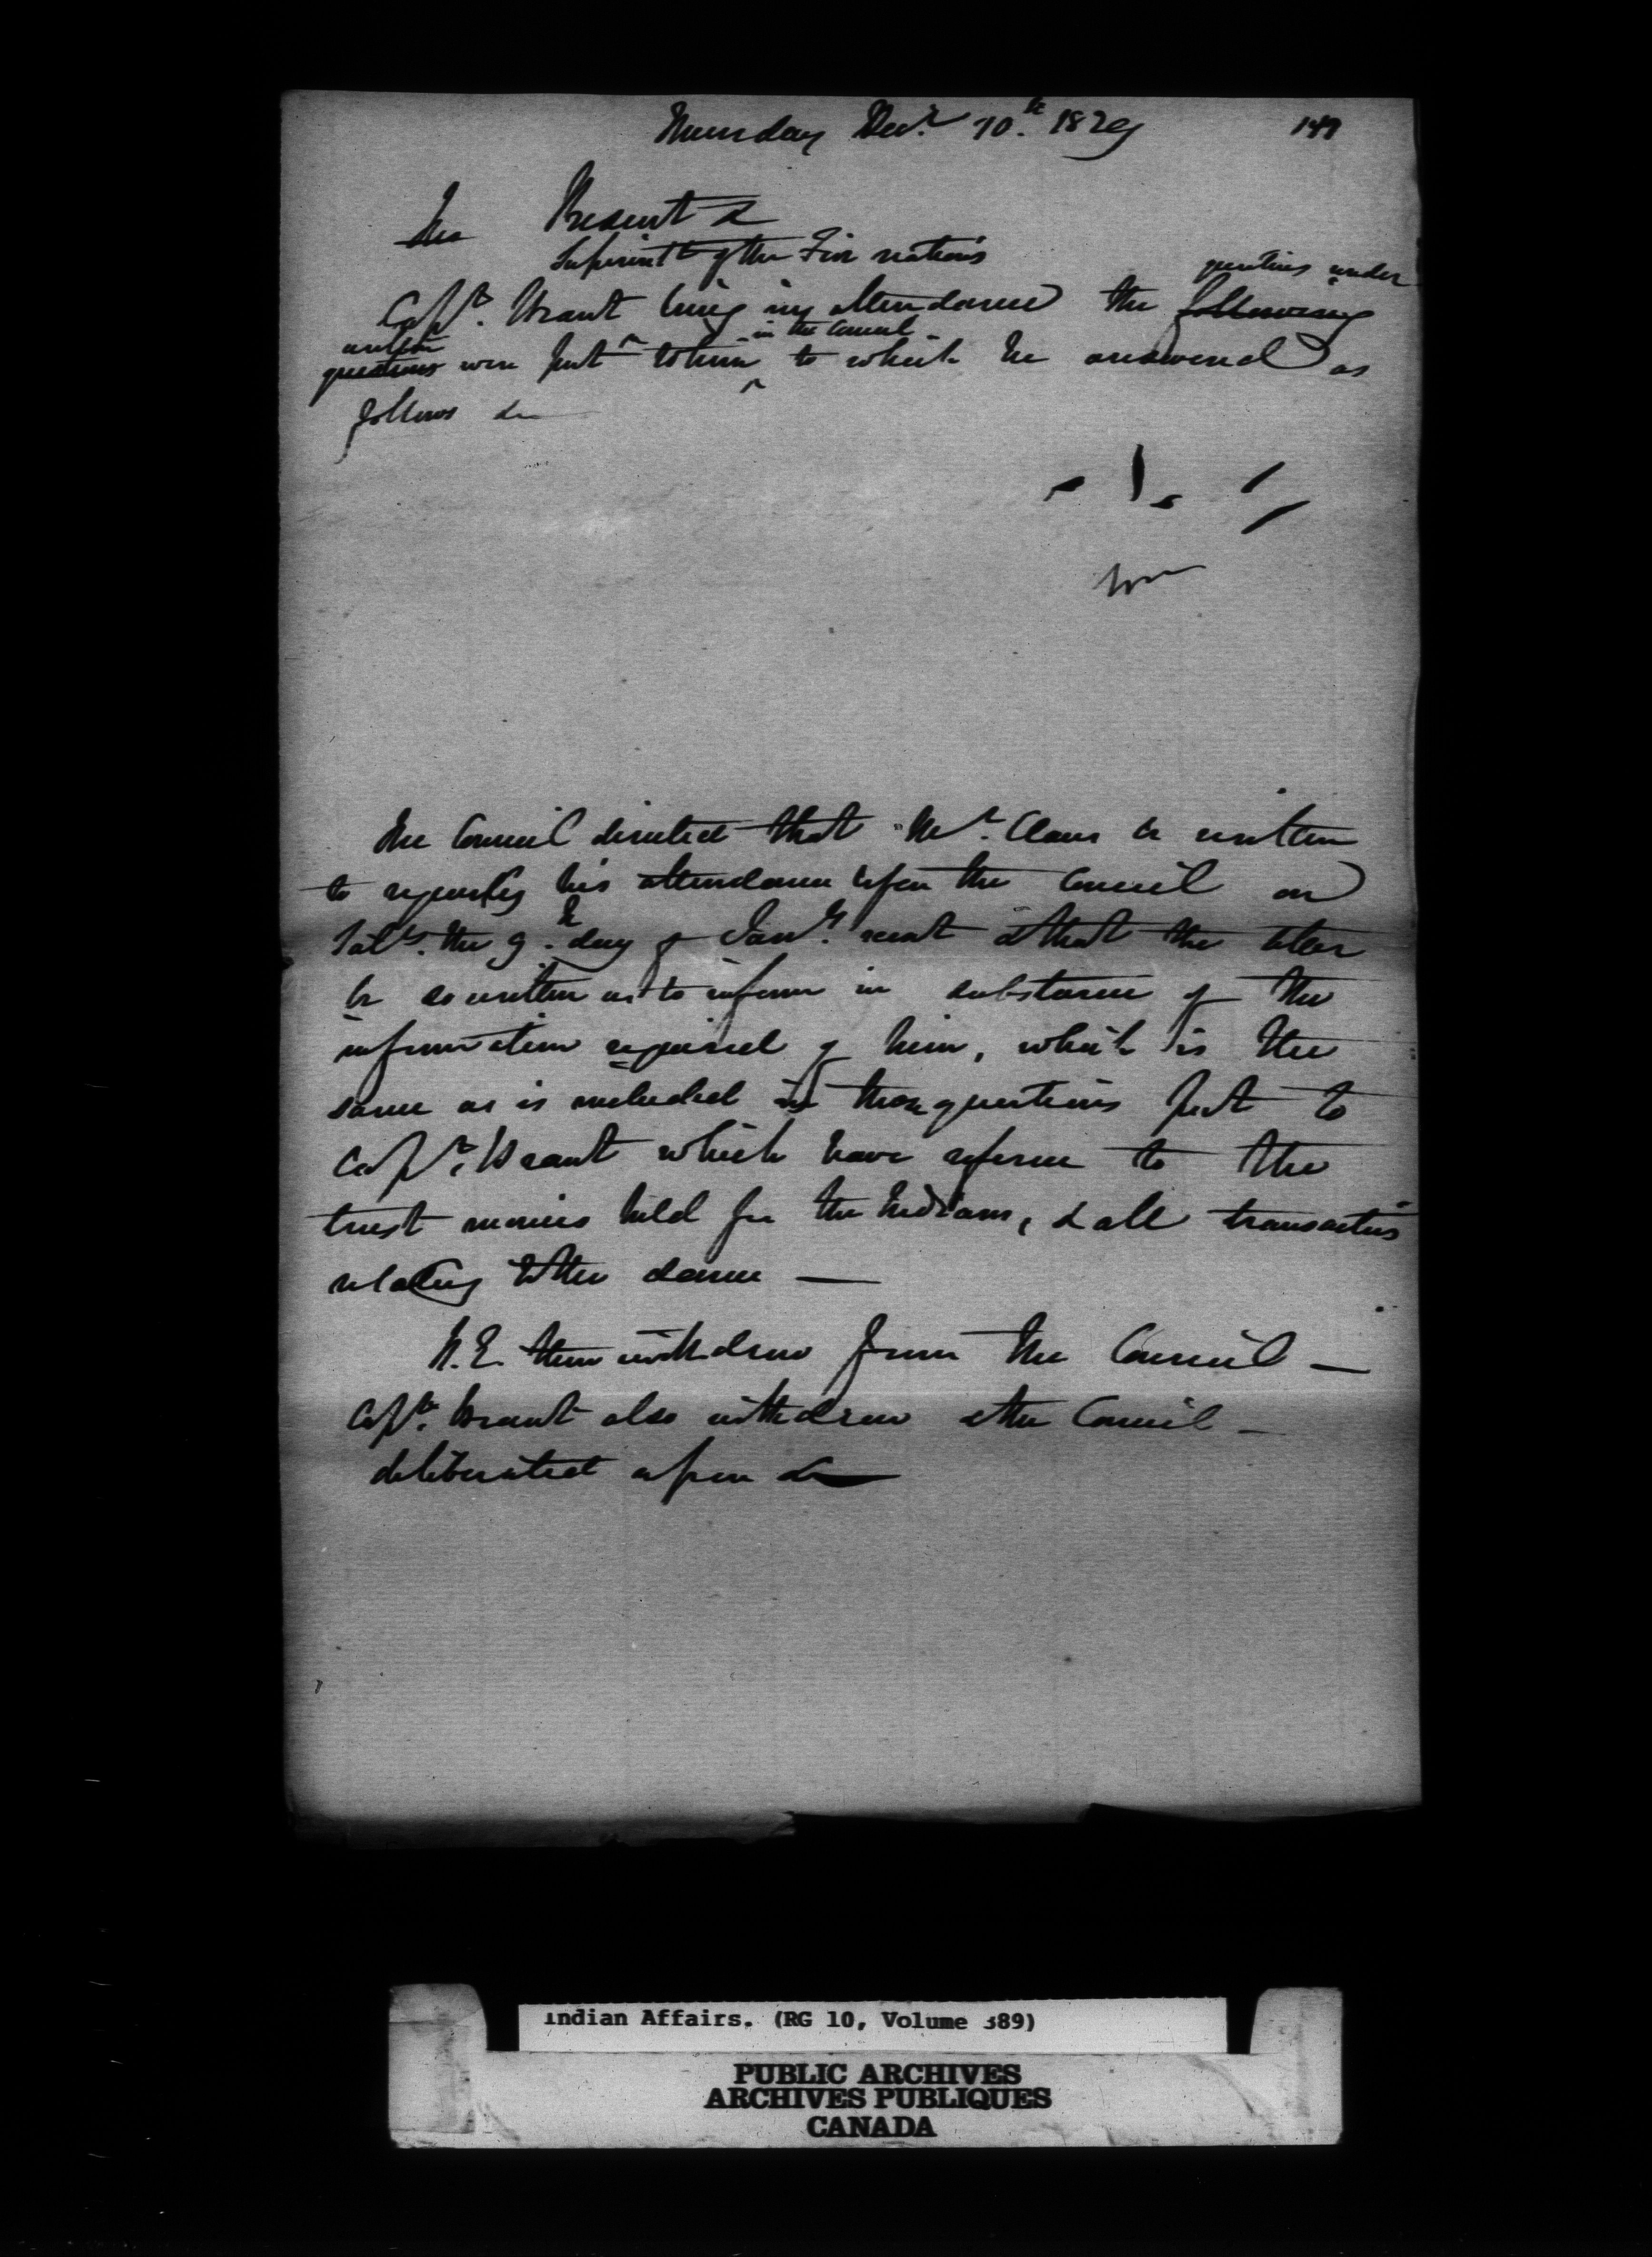 Thursday Decr. 10th. 1829 149
The Present &
Superintt of the Five nations
questions under
Capt. Brant being in attendance the following
written in the Council
questions were put to him to which he answered as
follows &c
The Council directed that Mr. Claus be written
to requesting his attendance upon the Council on
Saty. the 9th. day of Jany. next & that the letter
be so written as to inform in substance of the
information required of him, which is the
same as is included in those questions put to
Capt. Brant which have reference to the
trust monies held for the Indians, & all transactions
relating to the same —
H.E. then withdrew from the Council —
Capt. Brant also withdrew & the Council —
deliberated upon &c
Indian Affairs. (RG 10, Volume 389)
PUBLIC ARCHIVES
ARCHIVES PUBLIQUES
CANADA